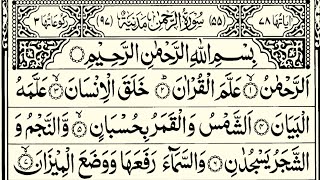 اٰيَاتُهَا ٧٨ (٥٥) سُوْرَةُ الرَّحْمٰنِ مَدَنِيَّةٌ (٩٧) رُكُوْعَاتُهَا ٣
بِسْمِ اللّٰهِ الرَّحْمٰنِ الرَّحِيْمِ
اَلرَّحْمٰنُ ۙ﴿١﴾ عَلَّمَ الْقُرْاٰنَ ؕ﴿٢﴾ خَلَقَ الْاِنْسَانَ ۙ﴿٣﴾ عَلَّمَهُ
الْبَيَانَ ﴿٤﴾ اَلشَّمْسُ وَ الْقَمَرُ بِحُسْبَانٍ ۪﴿٥﴾ وَّ النَّجْمُ وَ
الشَّجَرُ يَسْجُدٰنِ ﴿٦﴾ وَ السَّمَآءَ رَفَعَهَا وَ وَضَعَ الْمِيْزَانَ ۙ﴿٧﴾